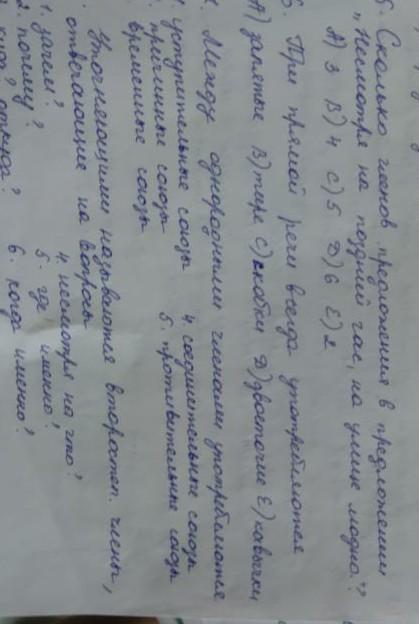 5. Сколько членов предложения в предложении
„Несмотря на поздний час, на улице людно."
А) 3 В) 4 С) 5 Д) 6 Е) 2
6. При прямой речи всегда употребляются
А) запятые В) тире С) скобки Д) двоеточие Е) кавычки
Между однородными членами употребляются
уступительные союзы 4. соединительные союзы
причинные союзы 5. противительные союзы
временные союзы
Уточняющими называются второстеп. члены,
отвечающие на вопросы
1. зачем? 4. несмотря на что?
2. почему? 5. где именно?
куда? откуда? 6. когда именно?